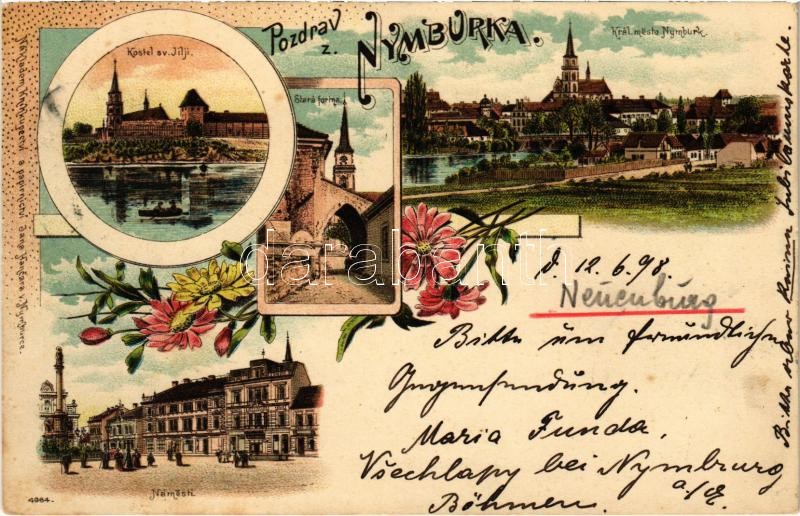 Pozdrav
z.
NYMBURKA.
Kostel sv. Jiljí.
Stará fortna.
Král. město Nymburk.
Náměstí.
4964.-
Nákladem knihkupectví a papírnictví Jana
d. 12.6.98.
Neuenburg
Bitte um freundliche
Gegensendung.
Maria Funda,
Všechlapy bei Nymburg
a/E
Böhmen.
Bitte selber keine
darabanth